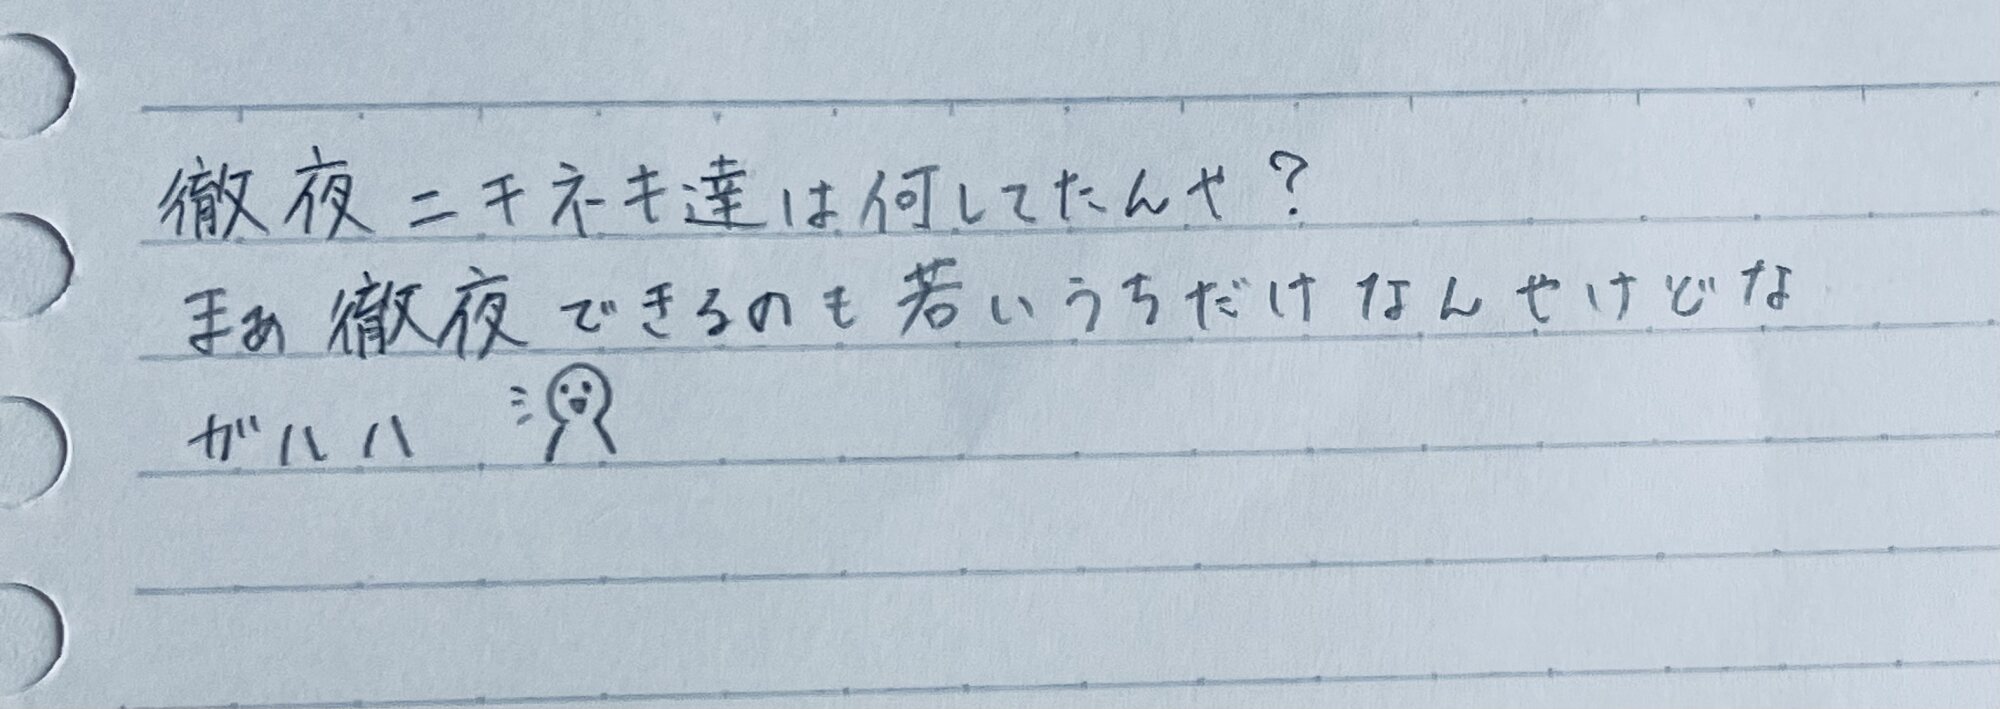 徹夜ニキネキ達は何してたんや？
まぁ徹夜できるのも若いうちだけなんやけどな
ガハハ